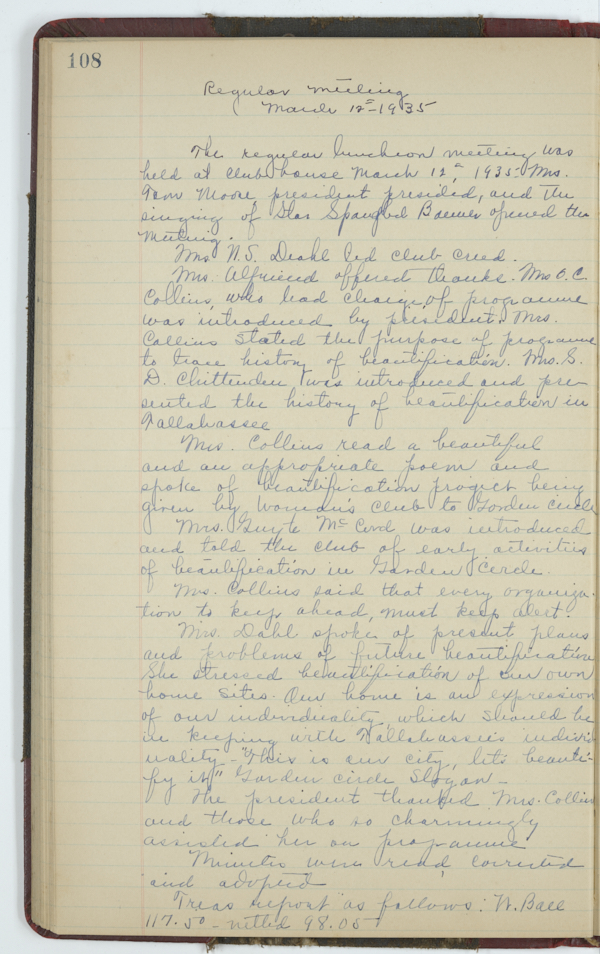 108
Regular Meeting
March 12=-1935
The regular luncheon meeting was
held at Club house March 12=, 1935. Mrs.
Tom Moore, president presided, and the
singing of Star Spangled Banner opened the
meeting.
Mrs N.S. Deahl led club Creed.
Mrs. Alfriend offered thanks. Mrs O.C.
Collins, who had charge of programme
was introduced by president. Mrs.
Collins stated the purpose of programme
to trace history of beautification. Mrs. S.
D. Chittenden, was introduced and pre-
sented the history of beautification in
Tallahassee
Mrs. Collins read a beautiful
and an appropriate poem and
spoke of beautification project being
given by Woman's Club to Gorden circle
Mrs. Guyte McCord was introduced
and told the club of early activities
of beautification in Garden Cercle.
Mrs. Collins said that every organiza-
tion to keep ahead, must keep alert.
Mrs. Dahl spoke of present plans
and problems of future beautification
She stressed beautification of our own
home sites. Our home is an expression
of our individuality, which should be
in keeping with Tallahassee's individ-
uality - "This is our city, let's beauti-
fy it" Garden circle Slogan -
The president thanked Mrs. Collins
and those who so charmingly
assisted her on programme
Minutes were read, corrected
and adopted
Treas report as follows: W. Ball
117.50 - netted 98.05